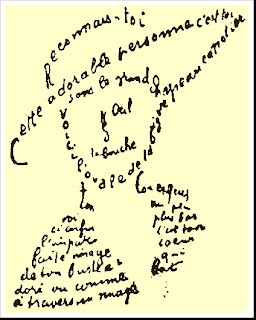 Reconnais-toi
Cette adorable personne c'est toi
Sous le grand chapeau canotier
Œil
Nez
la bouche
Voici l'ovale de ta figure
Ton cou
Voici enfin
l'imparfaite image
de ton buste
adoré vu comme
à travers un nuage
Un peu
plus bas
c'est ton
cœur
qui
bat